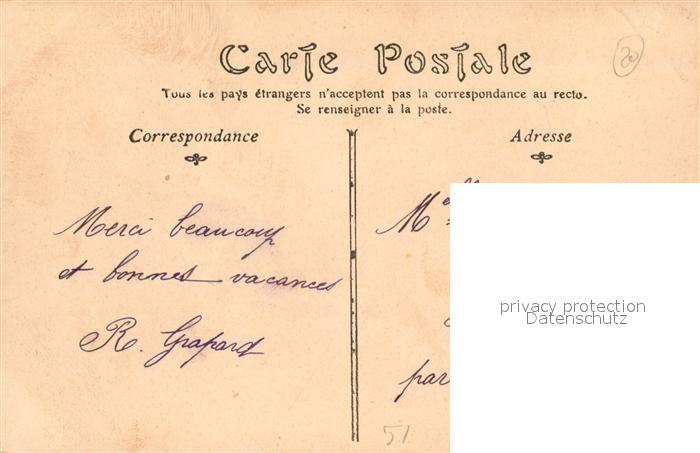 Carte Postale
20
Tous les pays étrangers n'acceptent pas la correspondance au recto.
Se renseigner à la poste.
Correspondance
Adresse
Merci beaucoup
et bonnes vacances
R. Grapard
M
par
51
privacy protection
Datenschutz